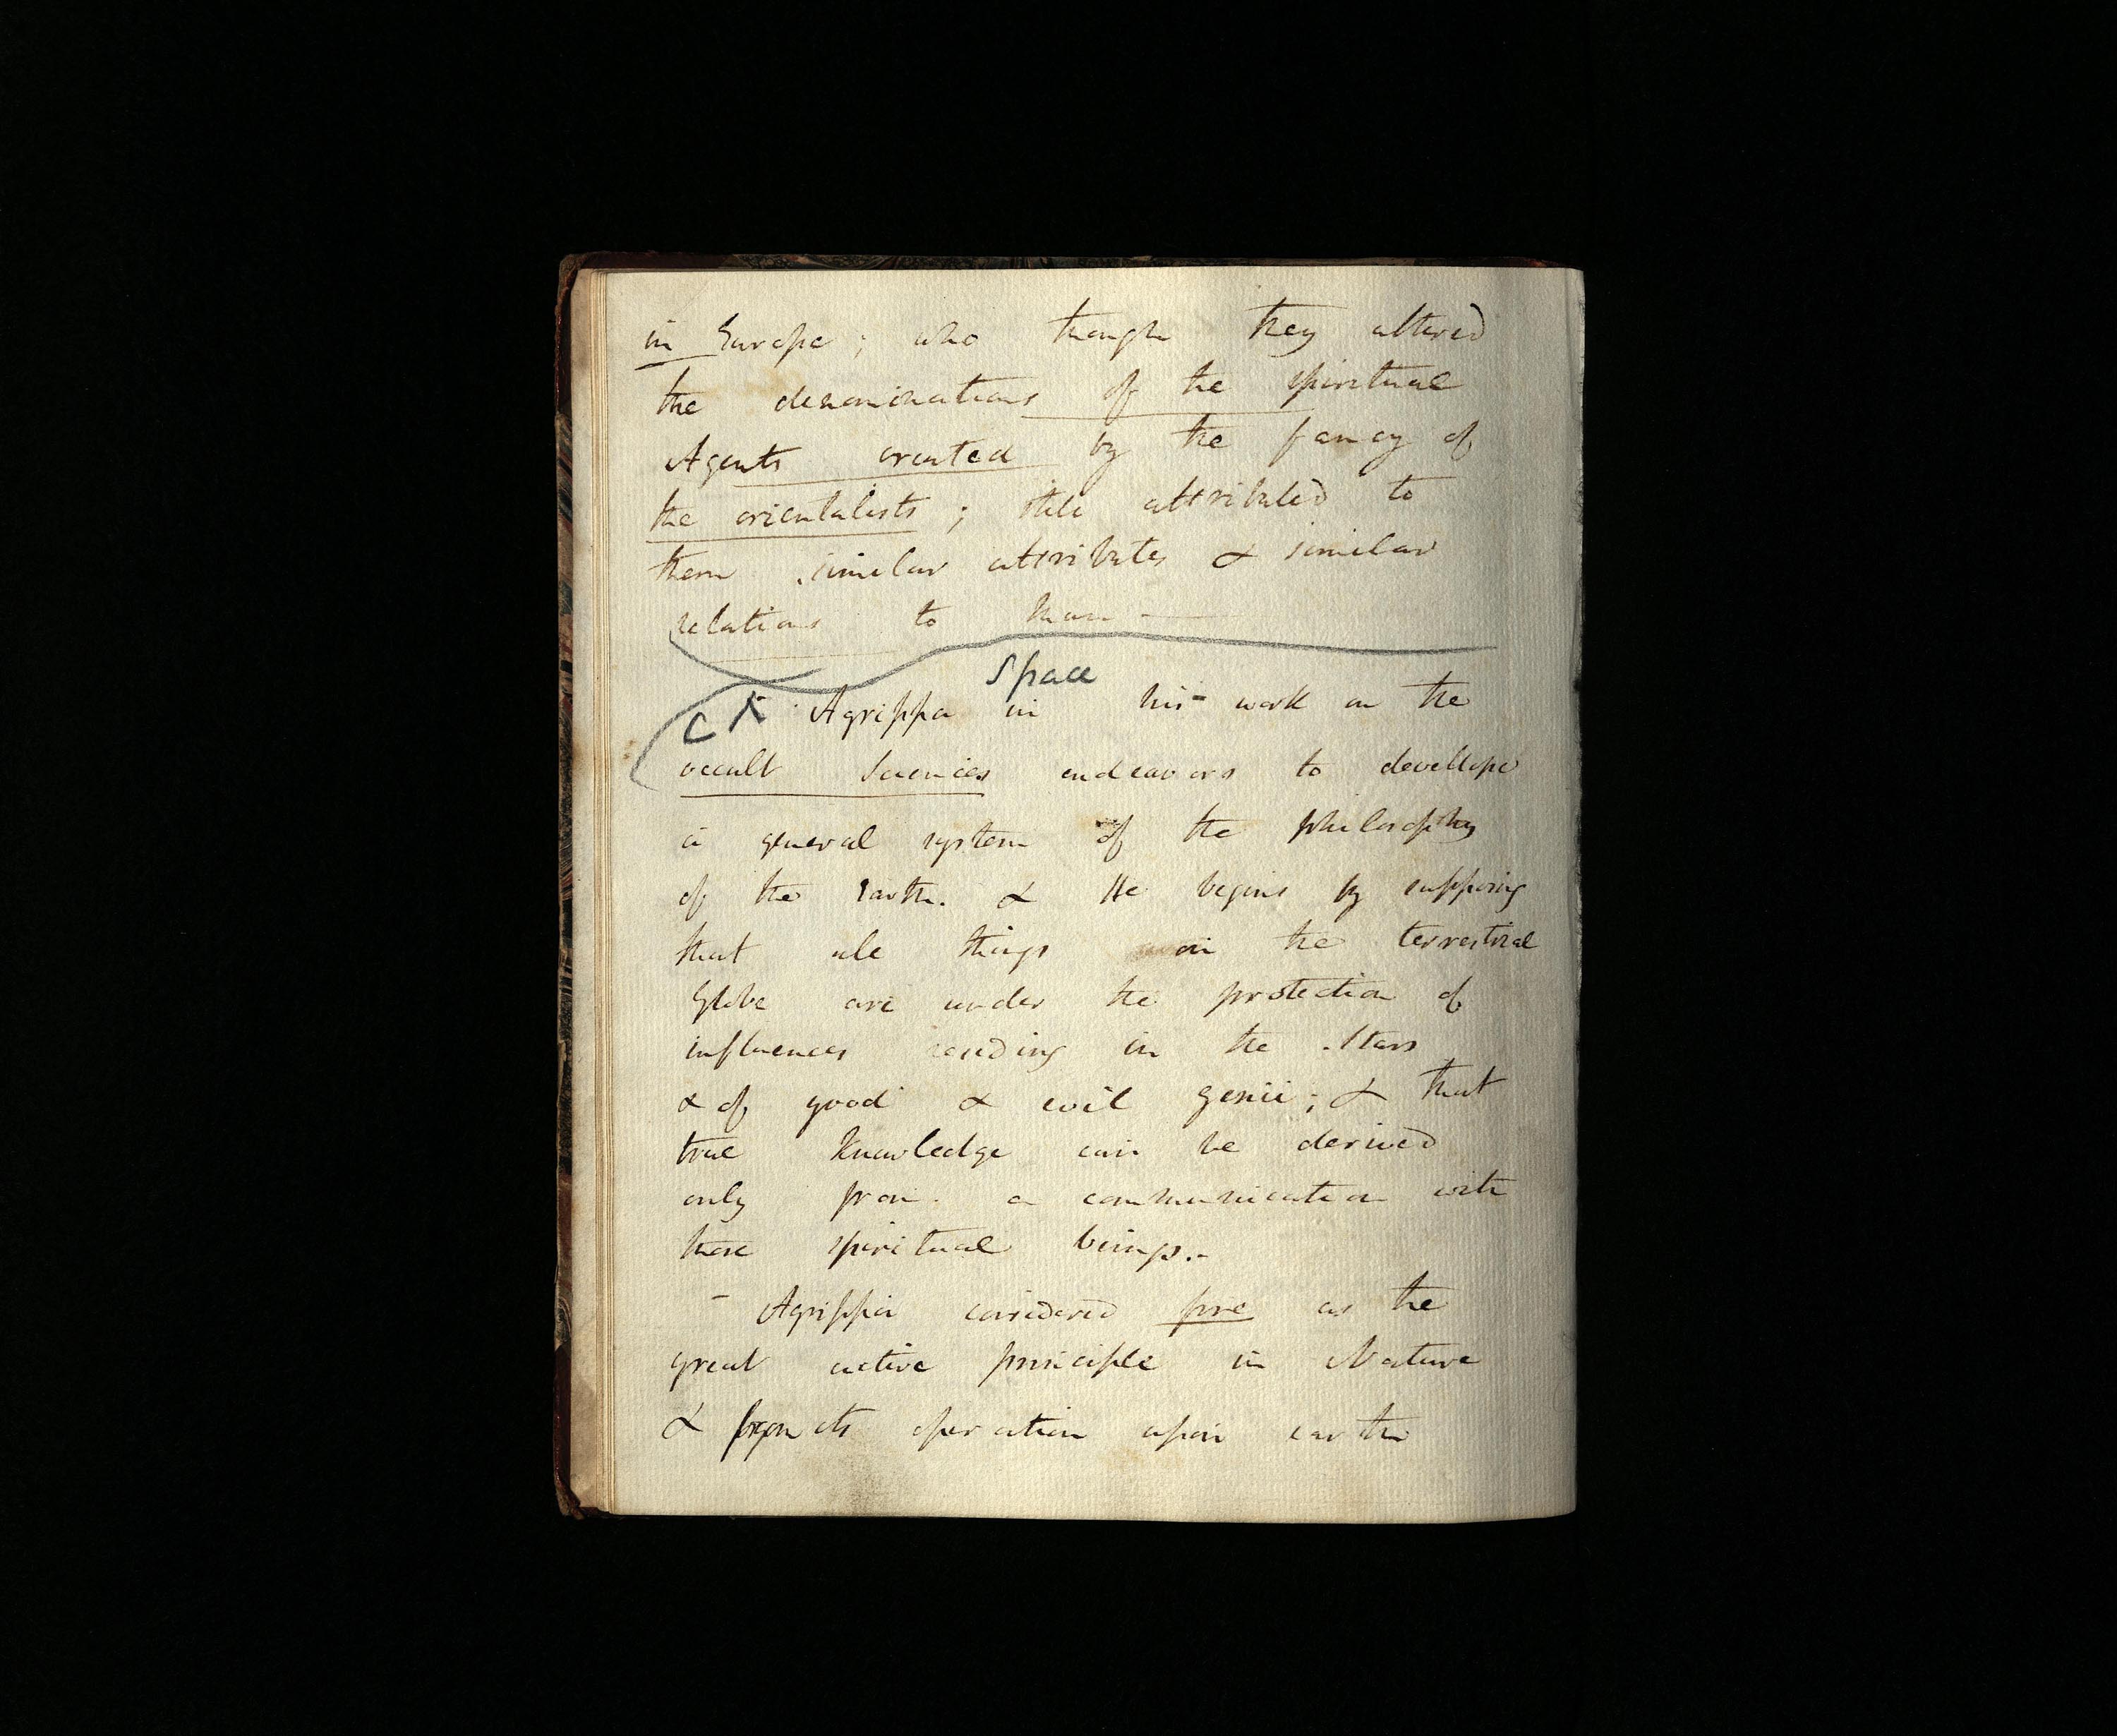 in Europe; who though they altered
the denominations of the spiritual
Agents created by the fancy of
the orientalists; still attributed to
them similar attributes & similar
relations to man —
Space
C Agrippa in his work on the
occult Sciences endeavors to develope
a general system of the philosophy
of the earth. & He begins by supposing
that all things on the terrestrial
Globe are under the protection of
influences residing in the Stars
& of good & evil genii; & that
true knowledge can be derived
only from a communication with
these spiritual beings.-
- Agrippa considered fire as the
great active principle in Nature
& from its operation upon earth